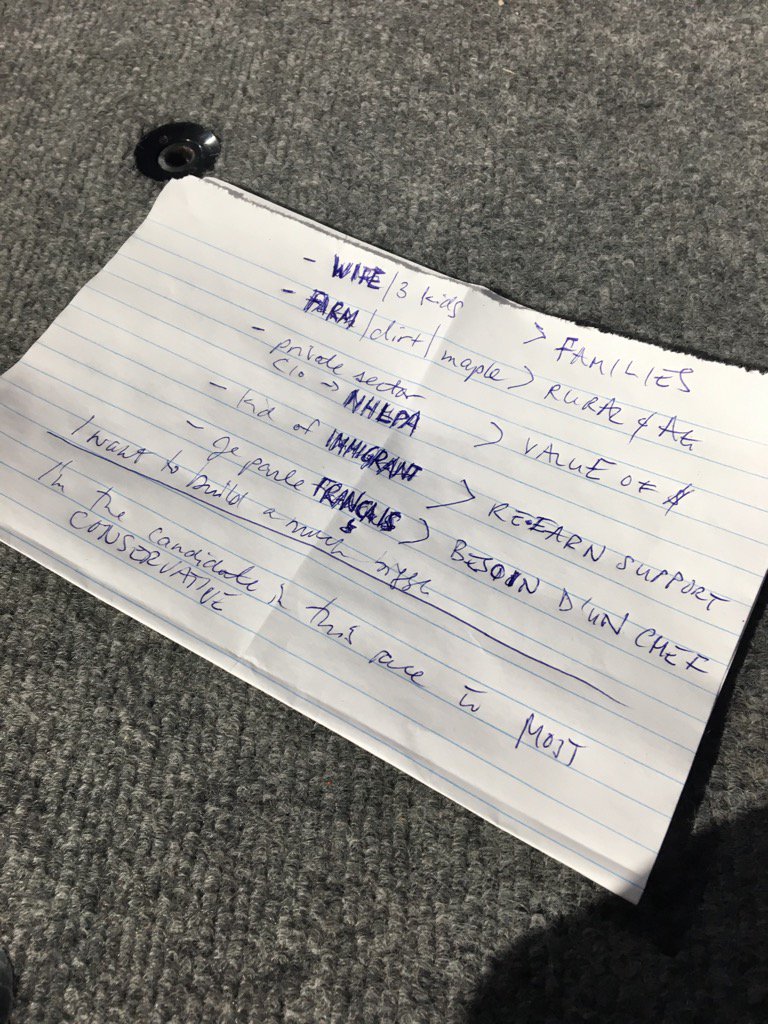 - WIFE / 3 kids > FAMILIES
- FARM / dirt / maple > RURAL & AG
- private sector
CIO → NHLPA > VALUE OF $
- kid of IMMIGRANT > RE-EARN SUPPORT
- je parle FRANÇAIS > BESOIN D'UN CHEF
I want to build a much bigger
I'm the candidate in this race to MOST
CONSERVATIVE